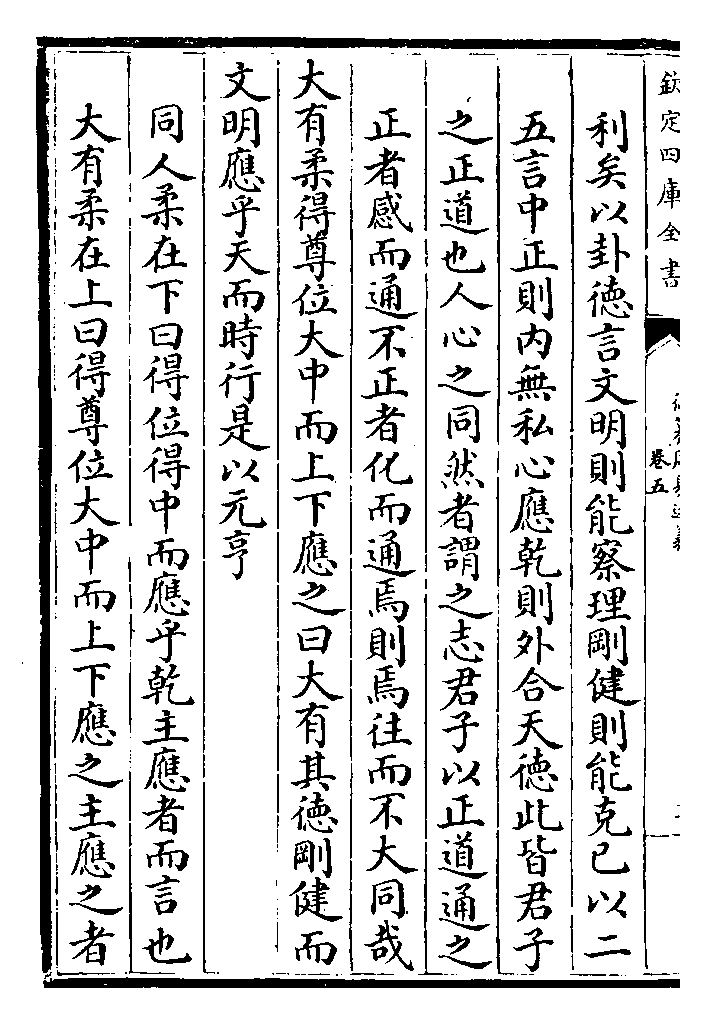 欽定四庫全書
卷五
利矣以卦徳言文明則能察理剛健則能克已以二
五言中正則内無私心應乾則外合天徳此皆君子
之正道也人心之同然者謂之志君子以正道通之
正者感而通不正者化而通焉則焉往而不大同哉
大有柔得尊位大中而上下應之曰大有其徳剛健而
文明應乎天而時行是以元亨
同人柔在下曰得位得中而應乎乾主應者而言也
大有柔在上曰得尊位大中而上下應之主應之者